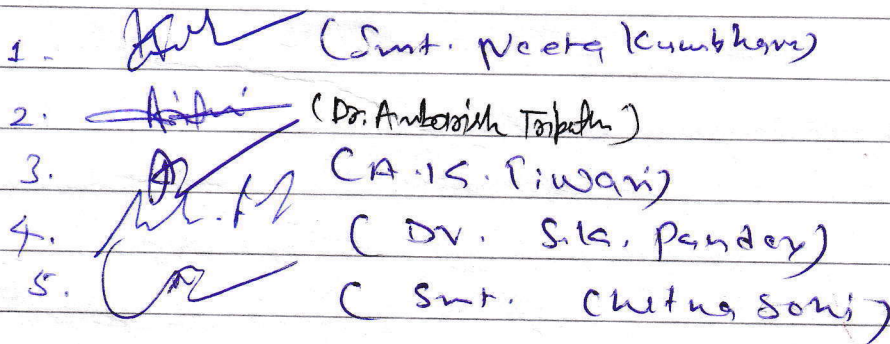 1. (Smt. Neeta Kumbhare)
2. (Dr. Ambarish Tripathi)
3. (A.K. Tiwari)
4. (Dr. S.K. Pandey)
5. (Smt. Chetna Soni)